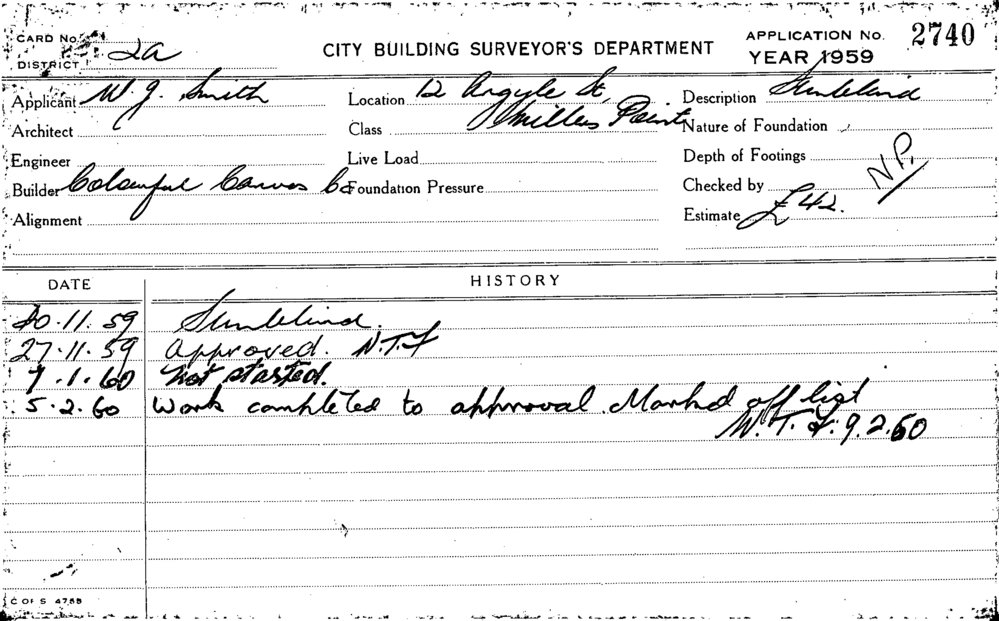 CARD No.
DISTRICT 2a
CITY BUILDING SURVEYOR'S DEPARTMENT
APPLICATION No. 2740
YEAR 1959
Applicant W. J. Smith
Location 12 Argyle St,
Millers Point
Description Sunblind
Architect
Class
Nature of Foundation
Engineer
Live Load
Depth of Footings
Builder Colourful Canvas Co
Foundation Pressure
Checked by
N.P.
Alignment
Estimate £42.
DATE
HISTORY
20.11.59 Sunblind.
27.11.59 Approved. W.T.F
7.1.60 Not started.
5.2.60 Work completed to approval Marked off list
W.T.F. 9.2.60
C OF S 4788